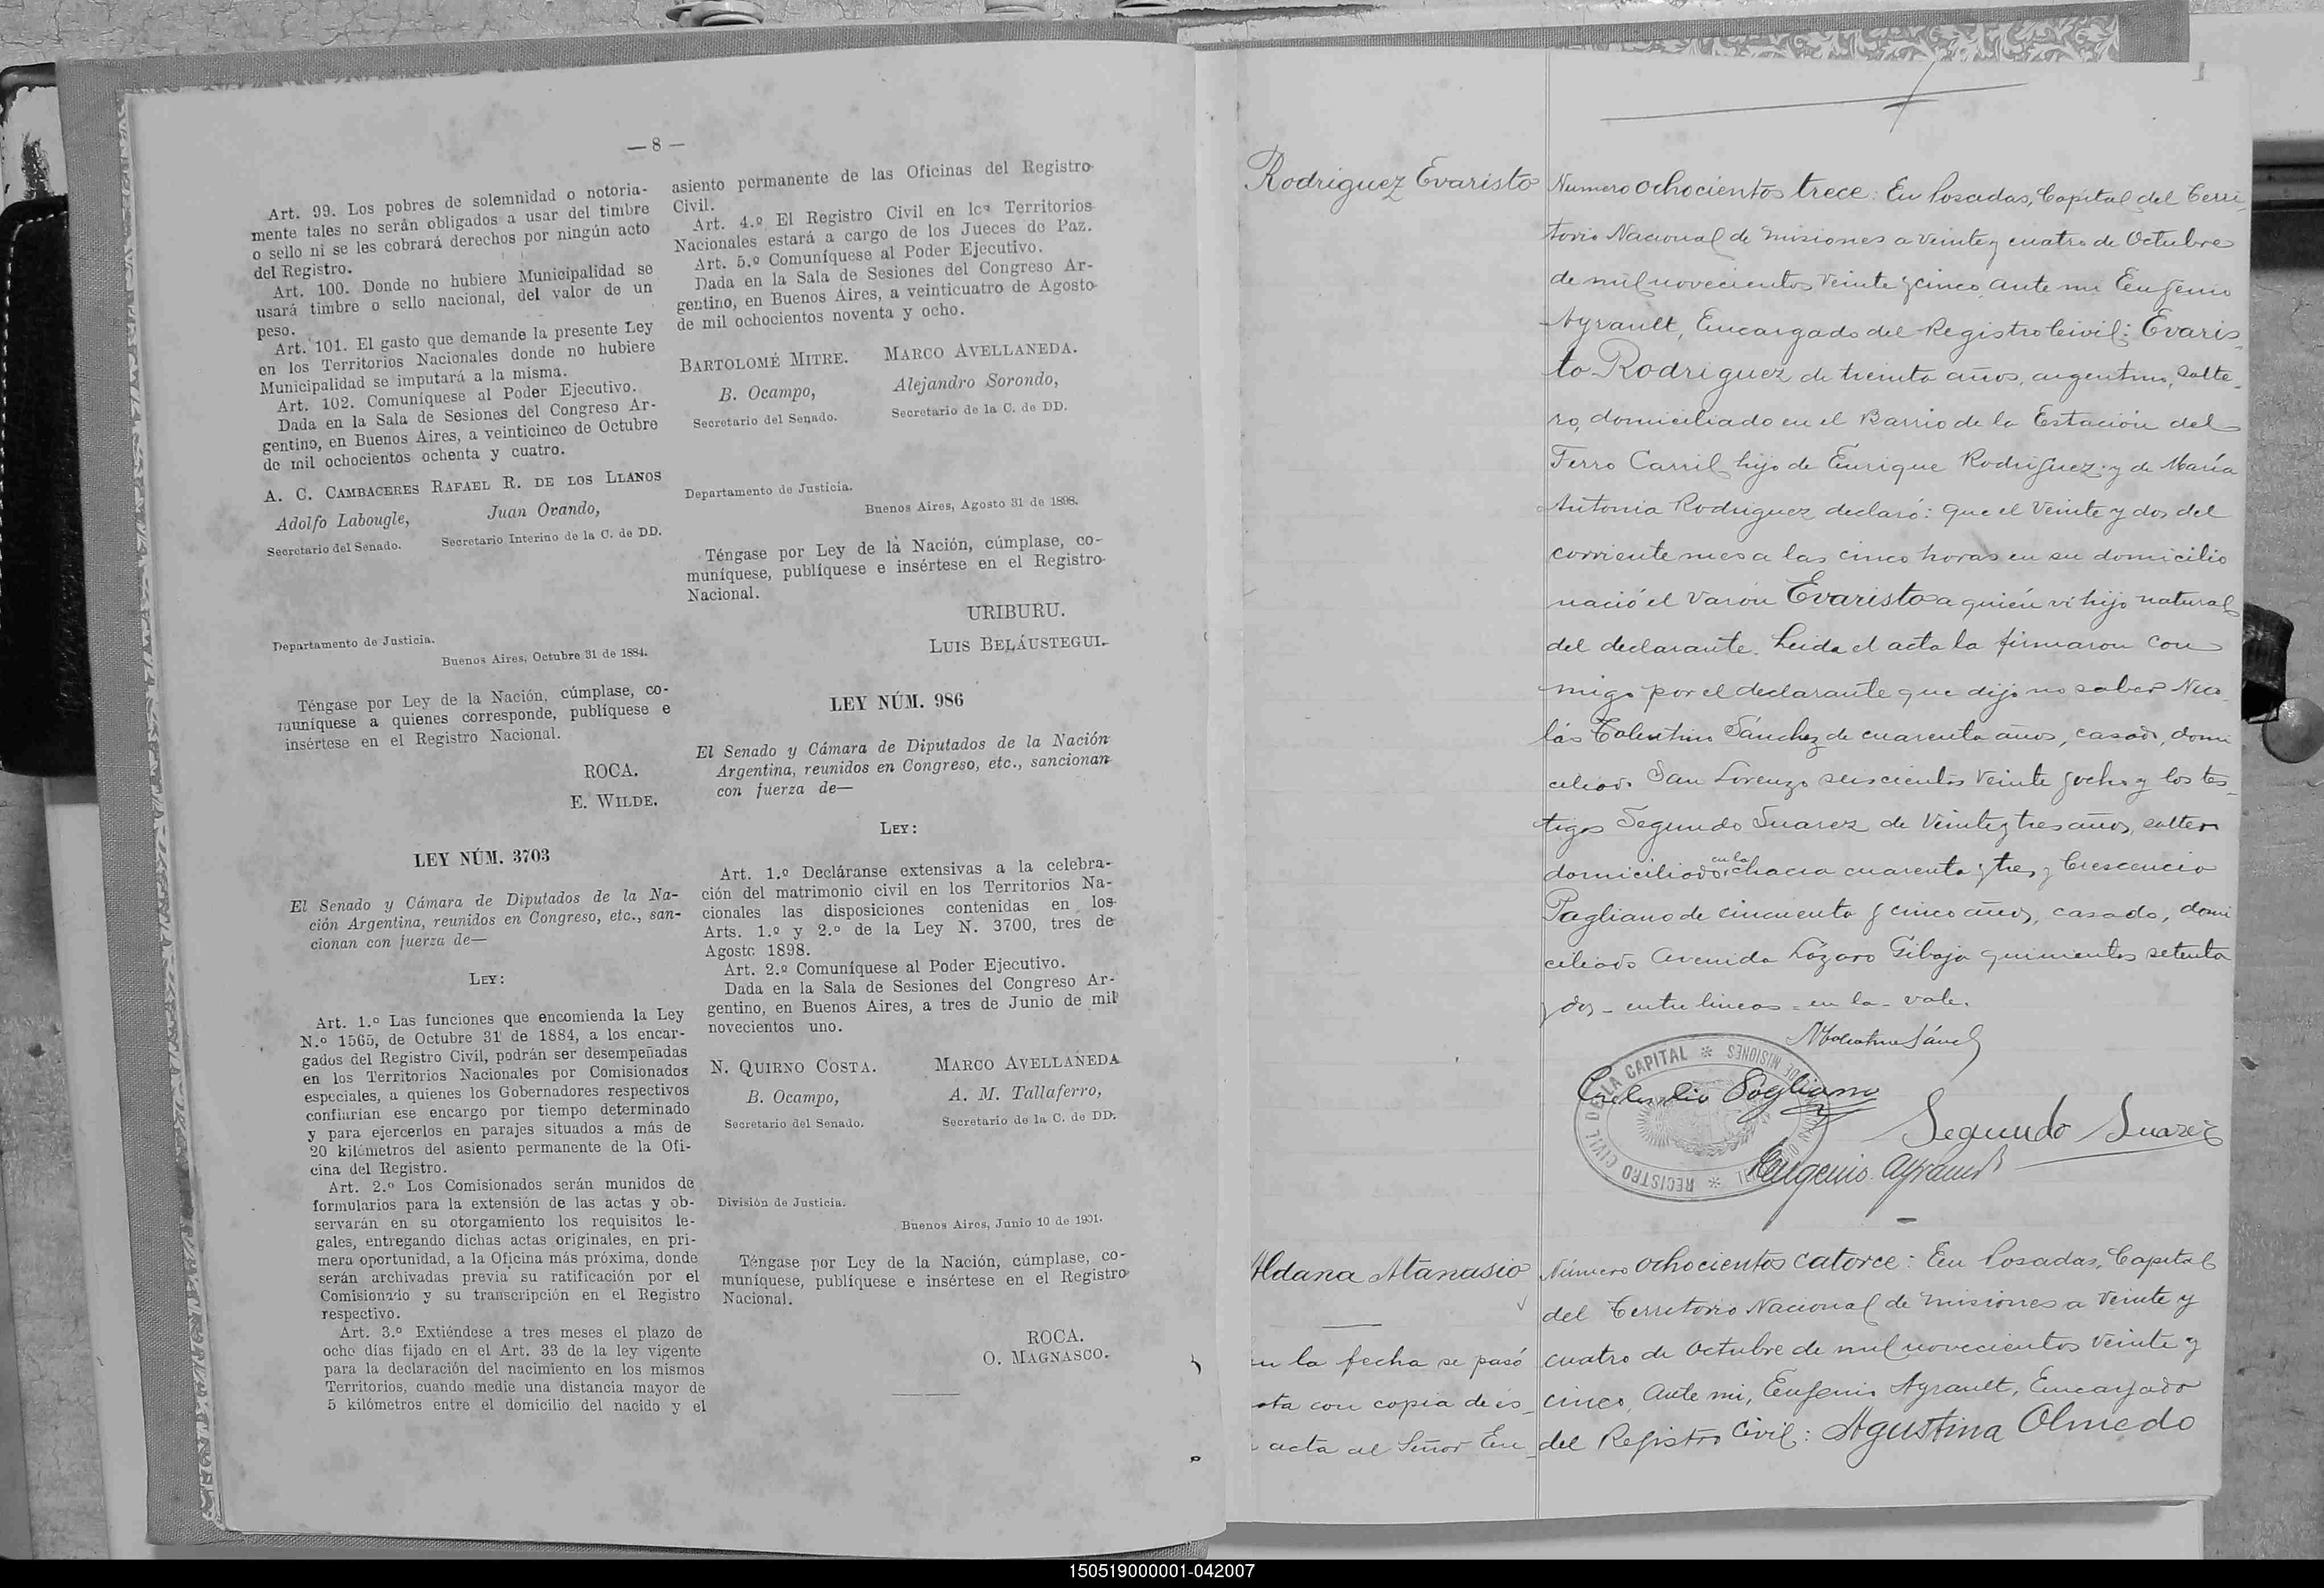 — 8 —
Art. 99. Los pobres de solemnidad o notoria-
mente tales no serán obligados a usar del timbre
o sello ni se les cobrará derechos por ningún acto
del Registro.
Art. 100. Donde no hubiere Municipalidad se
usará timbre o sello nacional, del valor de un
peso.
Art. 101. El gasto que demande la presente Ley
en los Territorios Nacionales donde no hubiere
Municipalidad se imputará a la misma.
Art. 102. Comuníquese al Poder Ejecutivo.
Dada en la Sala de Sesiones del Congreso Ar-
gentino, en Buenos Aires, a veinticinco de Octubre
de mil ochocientos ochenta y cuatro.
A. C. CAMBACERES RAFAEL R. DE LOS LLANOS
Adolfo Labougle, Juan Ovando,
Secretario del Senado. Secretario Interino de la C. de DD.
Departamento de Justicia.
Buenos Aires, Octubre 31 de 1884.
Téngase por Ley de la Nación, cúmplase, co-
muníquese a quienes corresponde, publíquese e
insértese en el Registro Nacional.
ROCA.
E. WILDE.
LEY NÚM. 3703
El Senado y Cámara de Diputados de la Na-
ción Argentina, reunidos en Congreso, etc., san-
cionan con fuerza de—
LEY:
Art. 1.º Las funciones que encomienda la Ley
N.º 1565, de Octubre 31 de 1884, a los encar-
gados del Registro Civil, podrán ser desempeñadas
en los Territorios Nacionales por Comisionados
especiales, a quienes los Gobernadores respectivos
confiarían ese encargo por tiempo determinado
y para ejercerlos en parajes situados a más de
20 kilómetros del asiento permanente de la Ofi-
cina del Registro.
Art. 2.º Los Comisionados serán munidos de
formularios para la extensión de las actas y ob-
servarán en su otorgamiento los requisitos le-
gales, entregando dichas actas originales, en pri-
mera oportunidad, a la Oficina más próxima, donde
serán archivadas previa su ratificación por el
Comisionado y su transcripción en el Registro
respectivo.
Art. 3.º Extiéndese a tres meses el plazo de
ocho días fijado en el Art. 33 de la ley vigente
para la declaración del nacimiento en los mismos
Territorios, cuando medie una distancia mayor de
5 kilómetros entre el domicilio del nacido y el
asiento permanente de las Oficinas del Registro
Civil.
Art. 4.º El Registro Civil en los Territorios
Nacionales estará a cargo de los Jueces de Paz.
Art. 5.º Comuníquese al Poder Ejecutivo.
Dada en la Sala de Sesiones del Congreso Ar-
gentino, en Buenos Aires, a veinticuatro de Agosto
de mil ochocientos noventa y ocho.
BARTOLOMÉ MITRE. MARCO AVELLANEDA.
B. Ocampo, Alejandro Sorondo,
Secretario del Senado. Secretario de la C. de DD.
Departamento de Justicia.
Buenos Aires, Agosto 31 de 1898.
Téngase por Ley de la Nación, cúmplase, co-
muníquese, publíquese e insértese en el Registro
Nacional.
URIBURU.
LUIS BELÁUSTEGUI.
LEY NÚM. 986
El Senado y Cámara de Diputados de la Nación
Argentina, reunidos en Congreso, etc., sancionan
con fuerza de—
LEY:
Art. 1.º Decláranse extensivas a la celebra-
ción del matrimonio civil en los Territorios Na-
cionales las disposiciones contenidas en los
Arts. 1.º y 2.º de la Ley N. 3700, tres de
Agosto 1898.
Art. 2.º Comuníquese al Poder Ejecutivo.
Dada en la Sala de Sesiones del Congreso Ar-
gentino, en Buenos Aires, a tres de Junio de mil
novecientos uno.
N. QUIRNO COSTA. MARCO AVELLANEDA
B. Ocampo, A. M. Tallaferro,
Secretario del Senado. Secretario de la C. de DD.
División de Justicia.
Buenos Aires, Junio 10 de 1901.
Téngase por Ley de la Nación, cúmplase, co-
muníquese, publíquese e insértese en el Registro
Nacional.
ROCA.
O. MAGNASCO.
Rodriguez Evaristo
Numero ochocientos trece: En Posadas, Capital del Terri-
torio Nacional de Misiones a veinte y cuatro de Octubre
de mil novecientos veinte y cinco, ante mi Eugenio
Ayrault, Encargado del Registro Civil: Evaris-
to Rodriguez de treinta años, argentino, solte-
ro, domiciliado en el Barrio de la Estación del
Ferro Carril hijo de Enrique Rodriguez y de María
Antonia Rodriguez declaró: que el veinte y dos del
corriente mes a las cinco horas en su domicilio
nació el varón Evaristo a quién ví hijo natural
del declarante. Leida el acta la firmaron con
migo por el declarante que dijo no saber Nico-
lás Tolentino Sánchez de cuarenta años, casado, domi
ciliado San Lorenzo seiscientos veinte y ocho y los tes-
tigos Segundo Suarez de veinte y tres años, soltero
domiciliado en la chacra cuarenta y tres y Crescencio
Pagliano de cincuenta y cinco años, casado, domi
ciliado Avenida Lázaro Gibaja quinientos setenta
y dos - entre lineas = en la - vale.
Crescencio Pagliano
Segundo Suarez
Eugenio Ayrault
REGISTRO CIVIL DE LA CAPITAL * DE MISIONES *
Aldana Atanasio
En la fecha se pasó
nota con copia de es-
acta al Señor En-
Número ochocientos catorce: En Posadas, Capital
del Territorio Nacional de Misiones a veinte y
cuatro de Octubre de mil novecientos veinte y
cinco, ante mi, Eugenio Ayrault, Encargado
del Registro Civil: Agustina Olmedo
150519000001-042007